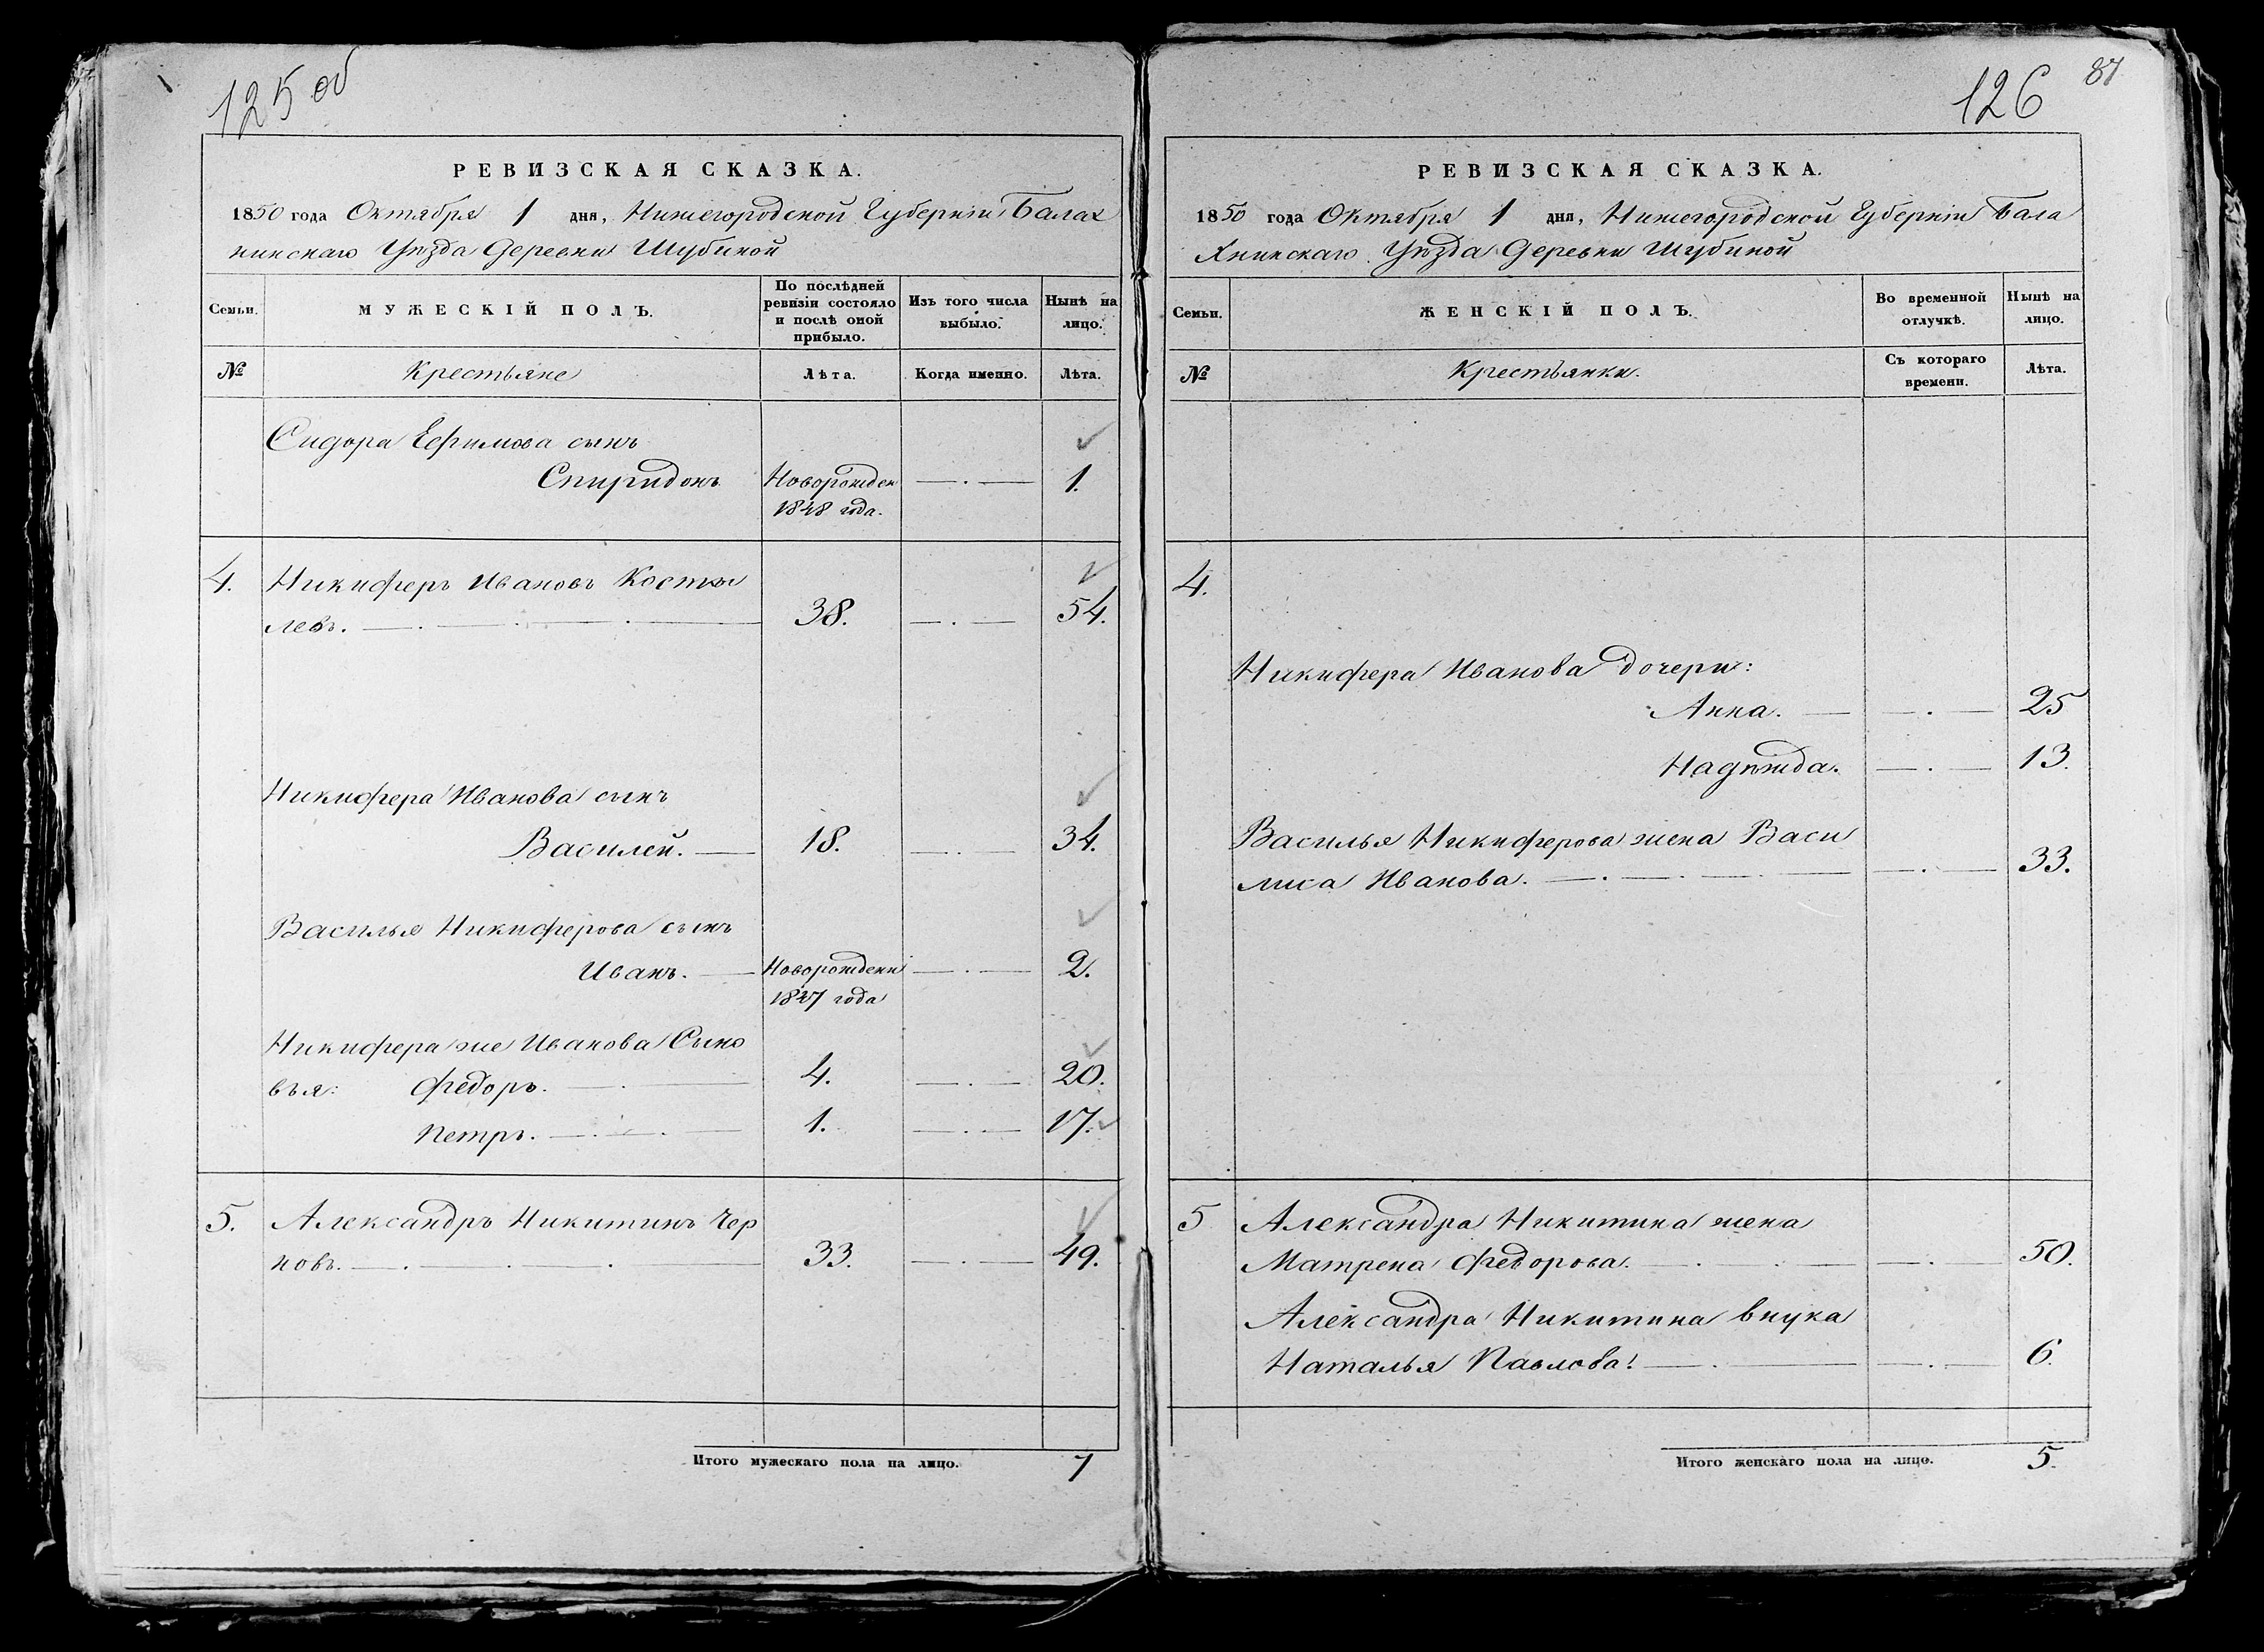 125 об
РЕВИЗСКАЯ СКАЗКА.
1850 года Октября 1 дня, Нижегородской Губерніи Балах
нинскаго Уѣзда Деревни Шубиной
Семьи.
МУЖЕСКІЙ ПОЛЪ.
По послѣдней
ревизіи состояло
и послѣ оной
прибыло.
Изъ того числа
выбыло.
Нынѣ на
лицо.
№
Крестьяне
Лѣта.
Когда именно.
Лѣта.
Сидора Ефимова сынъ
Спиридонъ Новорожден — . — 1.
1848 года.
4. Никиферъ Ивановъ Косты
левъ. — 38. — . — 54.
Никифера Иванова сынъ
Василей. — 18. — . — 34.
Василья Никиферова сынъ
Иванъ. — Новорожденн — . — 2.
1847 года
Никифера же Иванова Сыно
вья: Федоръ. — 4. — . — 20.
Петръ. — 1. — . — 17.
5. Александръ Никитинъ Чер
новъ. — 33. — . — 49.
Итого мужескаго пола на лицо. 7
126
87
РЕВИЗСКАЯ СКАЗКА.
1850 года Октября 1 дня, Нижегородской Губерніи Бала
хнинскаго Уѣзда Деревни Шубиной
Семьи.
ЖЕНСКІЙ ПОЛЪ.
Во временной
отлучкѣ.
Нынѣ на
лицо.
№
Крестьянки.
Съ котораго
времени.
Лѣта.
4.
Никифера Иванова дочери:
Анна. — — . — 25
Надѣжда. — . — 13.
Василья Никиферова жена Васи
лиса Иванова. — — . — 33.
5 Александра Никитина жена
Матрена Федорова. — — . — 50.
Александра Никитина внука
Наталья Павлова. — — . — 6.
Итого женскаго пола на лицо. 5.